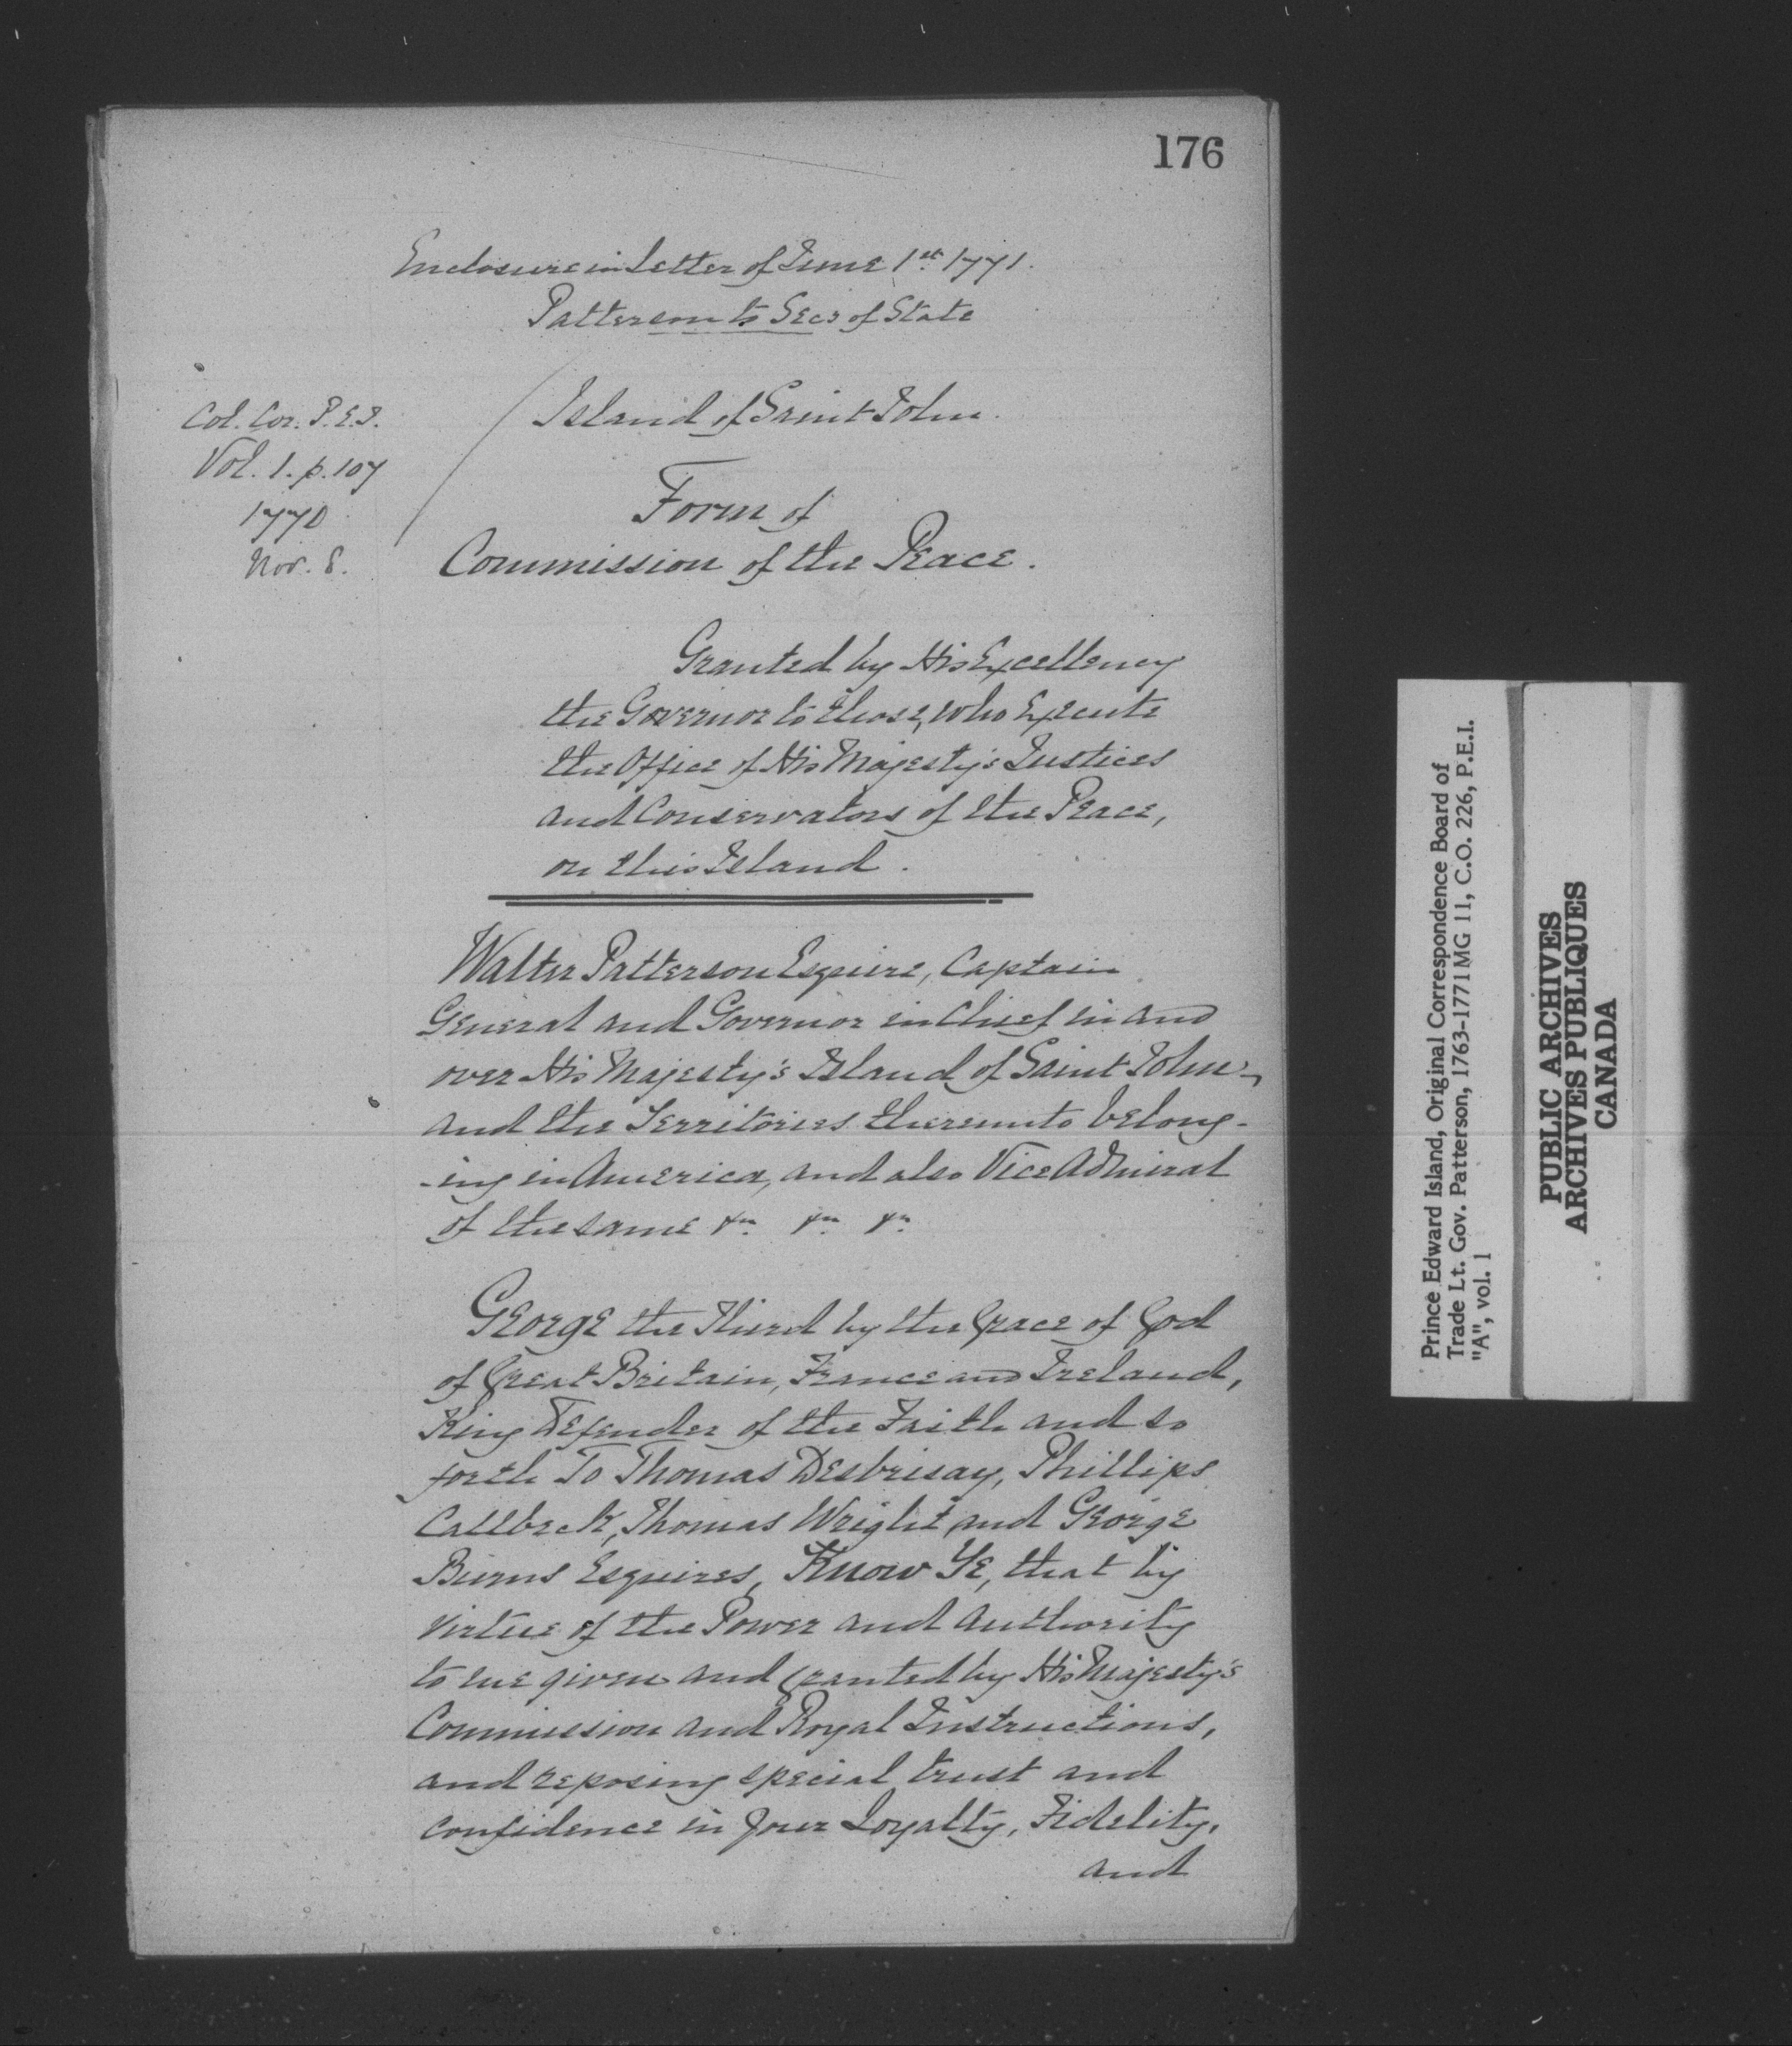 176
Enclosure in Letter of June 1st 1771.
Patterson to Secr of State
Col. Cor. P.E.I.
Vol. 1. p. 107
1770
Nov. 8.
Island of Saint John.
Form of
Commission of the Peace.
Granted by His Excellency
the Governor to those, who Execute
the Office of His Majesty's Justices
and Conservators of the Peace,
on this Island.
Walter Patterson Esquire, Captain
General and Governor in Chief in and
over His Majesty's Island of Saint John,
and the Territories thereunto belong-
-ing in America, and also Vice Admiral
of the same &c. &c. &c.
George the Third by the Grace of God
of Great Britain, France and Ireland,
King Defender of the Faith and so
forth To Thomas Desbrisay, Phillips
Callbeck, Thomas Wright, and George
Burns Esquires, Know Ye, that by
virtue of the Power and Authority
to me given and granted by His Majesty's
Commission and Royal Instructions,
and reposing special trust and
confidence in your Loyalty, Fidelity,
and
Prince Edward Island, Original Correspondence Board of
Trade Lt. Gov. Patterson, 1763-1771 MG 11, C.O. 226, P.E.I.
"A", vol. 1
PUBLIC ARCHIVES
ARCHIVES PUBLIQUES
CANADA